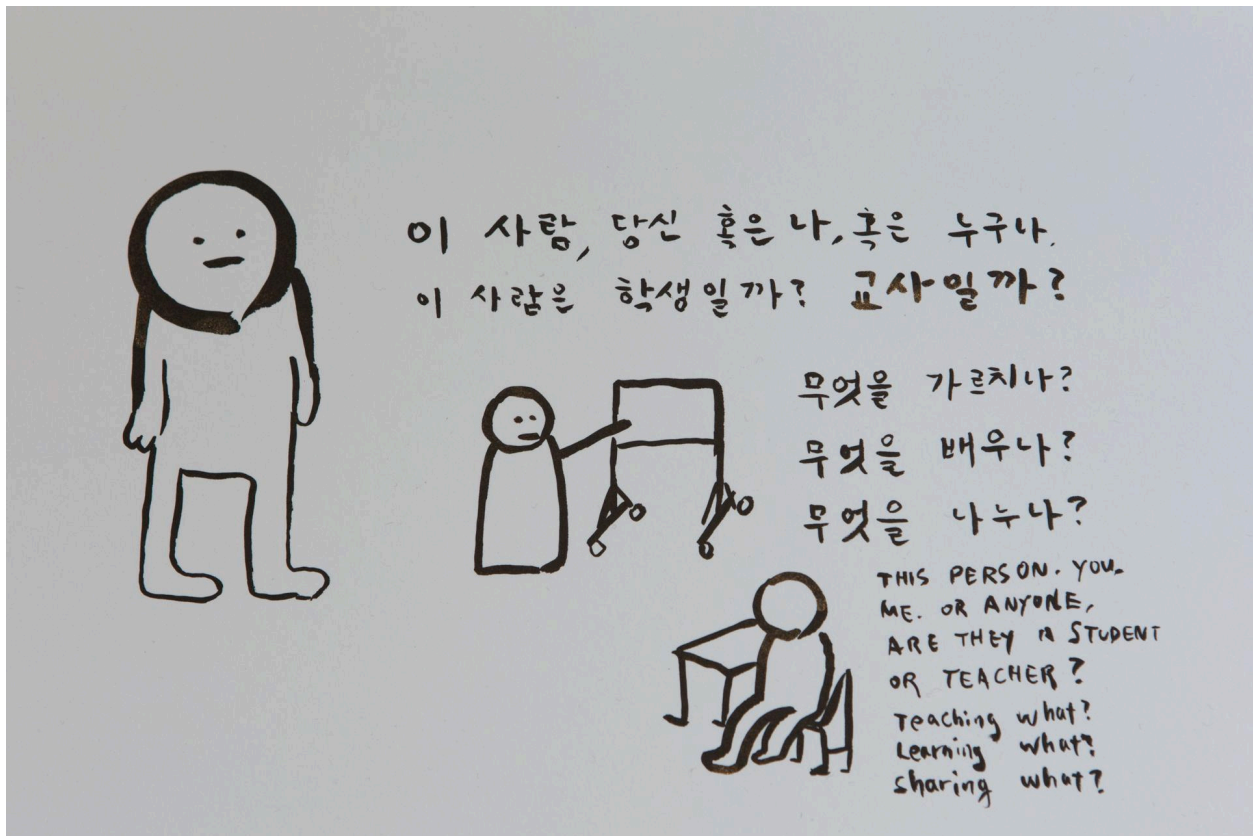 이 사람, 당신 혹은 나, 혹은 누구나.
이 사람은 학생일까? 교사일까?
무엇을 가르치나?
무엇을 배우나?
무엇을 나누나?
THIS PERSON. YOU.
ME. OR ANYONE,
ARE THEY A STUDENT
OR TEACHER?
Teaching what?
Learning what?
Sharing what?